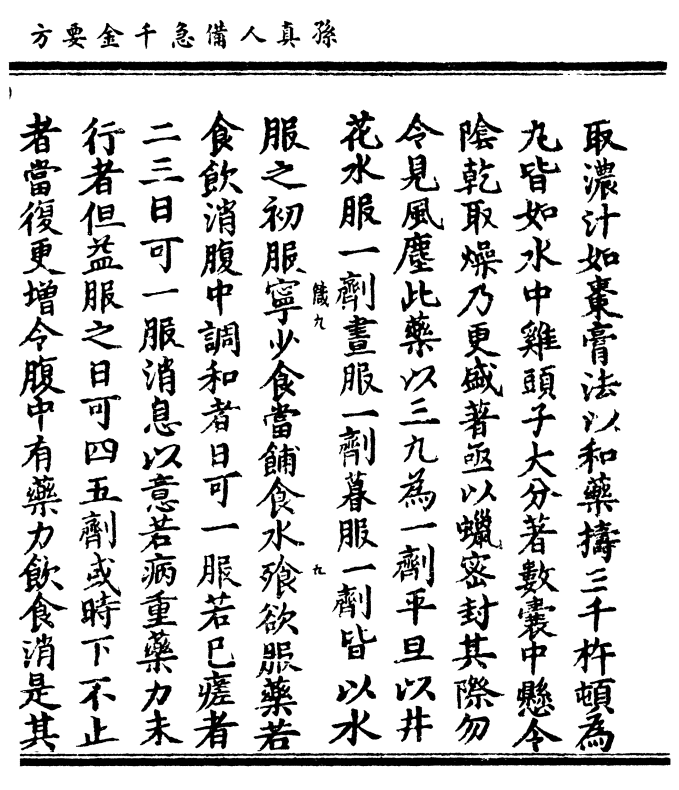 孫真人備急千金要方
取濃汁如棗膏法以和藥擣三千杵頓為
丸皆如水中雞頭子大分著數囊中懸令
陰乾取燥乃更盛著亟以蠟密封其際勿
令見風塵此藥以三九為一劑平旦以井
花水服一劑晝服一劑暮服一劑皆以水
服之初服寧少食當餔食水飱欲服藥若
食飲消腹中調和者日可一服若已瘥者
二三日可一服消息以意若病重藥力未
行者但益服之日可四五劑或時下不止
者當復更增令腹中有藥力飲食消是其